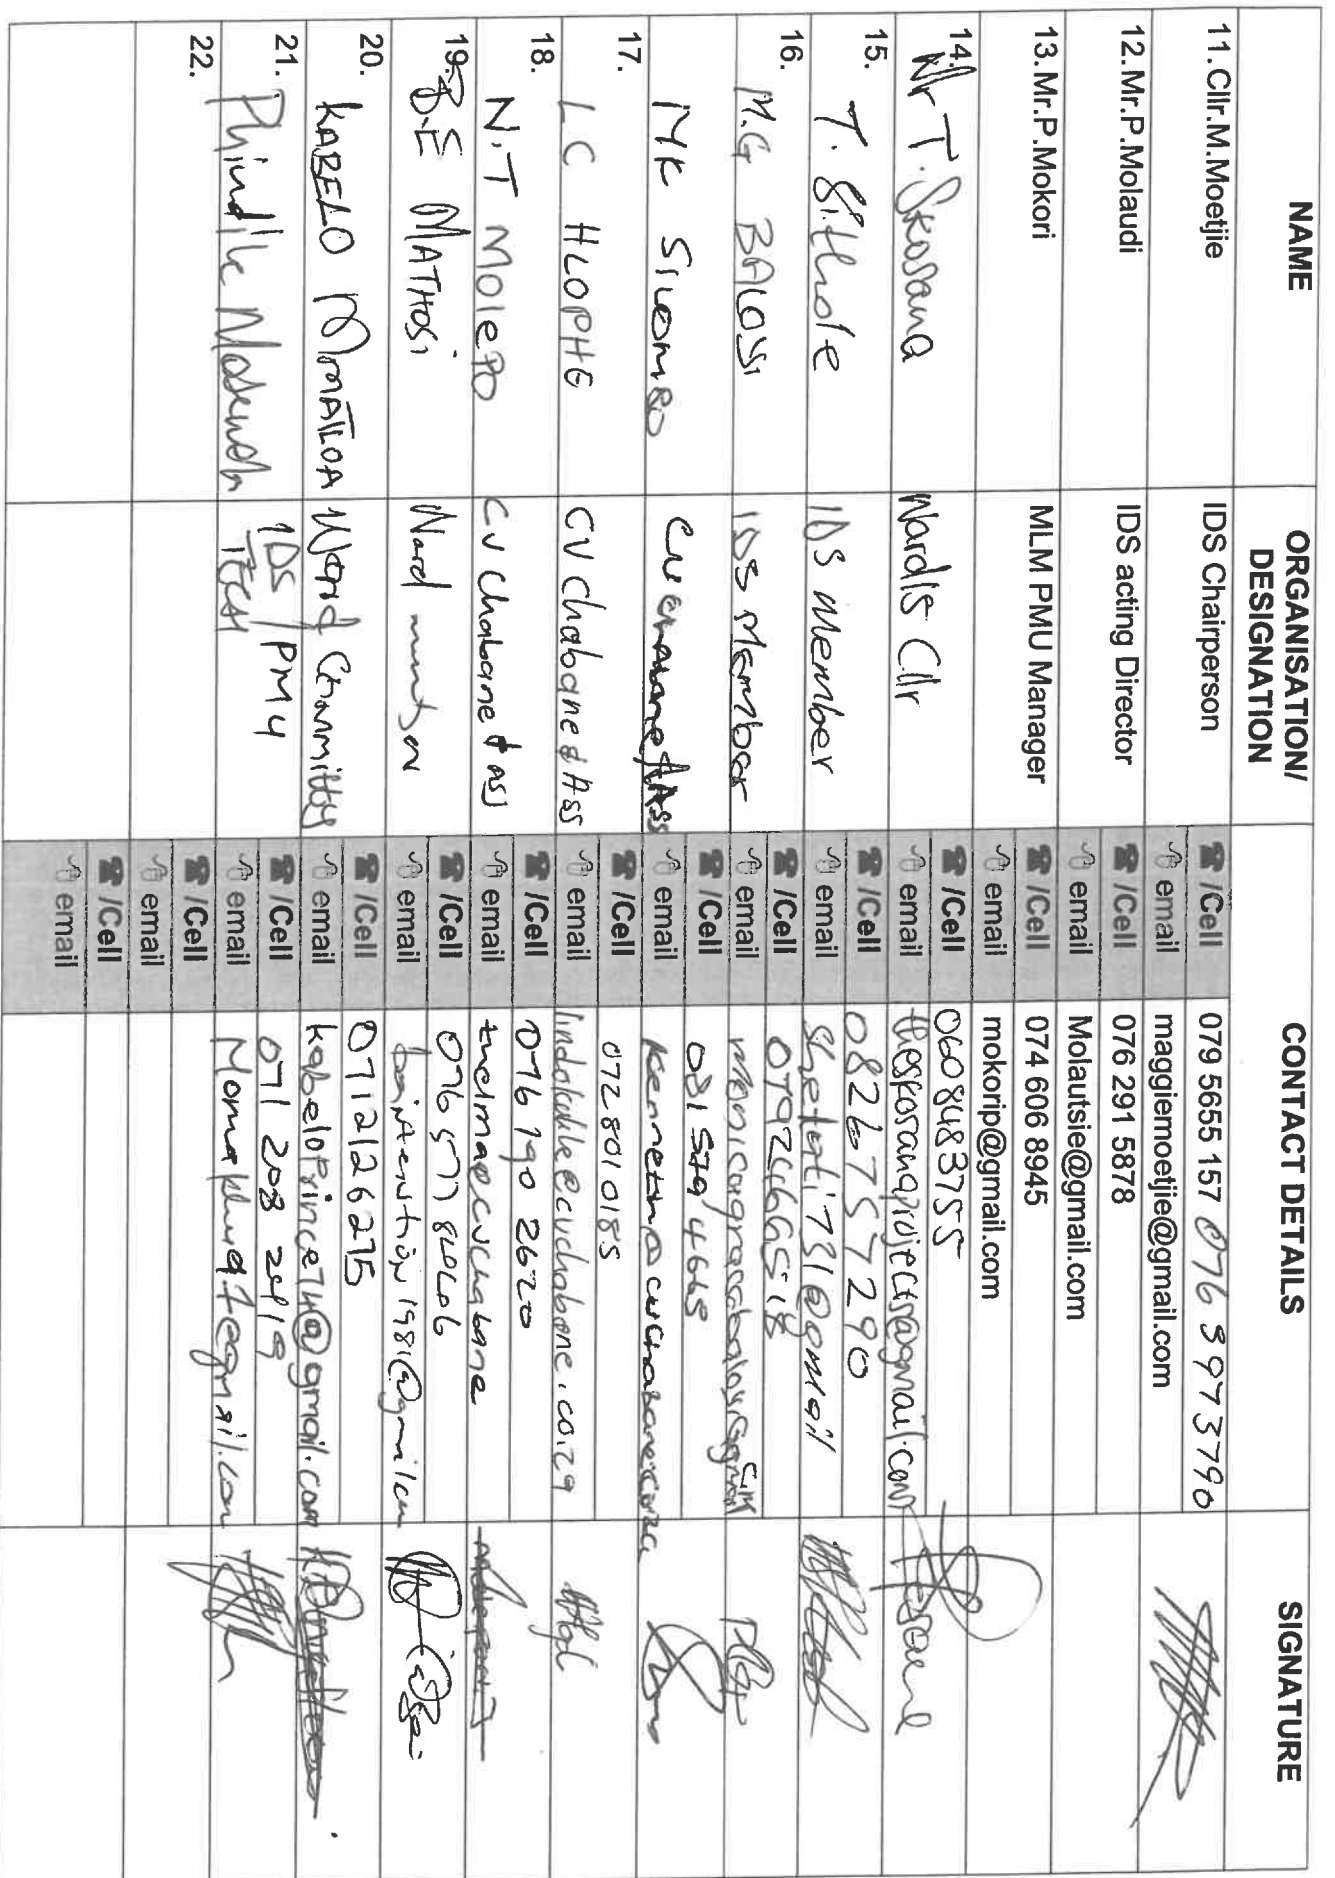 NAME ORGANISATION/ DESIGNATION CONTACT DETAILS SIGNATURE
11. Cllr.M.Moetjie IDS Chairperson /Cell 079 5655 157 076 3973790
email maggiemoetjie@gmail.com
12. Mr.P.Molaudi IDS acting Director /Cell 076 291 5878
email Molautsie@gmail.com
13. Mr.P.Mokori MLM PMU Manager /Cell 074 606 8945
email mokorip@gmail.com
14. Mr T. Skosana Ward 15 Cllr /Cell 0608483755
email theskosanaprojects@gmail.com
15. T. Sithole IDS member /Cell 0826757290
email
16. M.G BALOYI IDS Member /Cell 0792466518
email monicagracebaloyi@gmail.com
MK SILOMBO /Cell 081 579 4665
email
17. LC HLOPHE CV Chabane & Ass /Cell 072 801 0185
email lindokuhle@cvchabane.co.za
18. N.T MolePO CV Chabane & ass /Cell 076 190 2620
email thelma@cvchabane
19. B.E MATHOSI Ward /Cell 076 577
email
20. KABELO Ward Committy /Cell 0712126275
email kabeloprince74@gmail.com
21. Phindile IDS / PMU /Cell 071 208
email
22. /Cell
email
/Cell
email